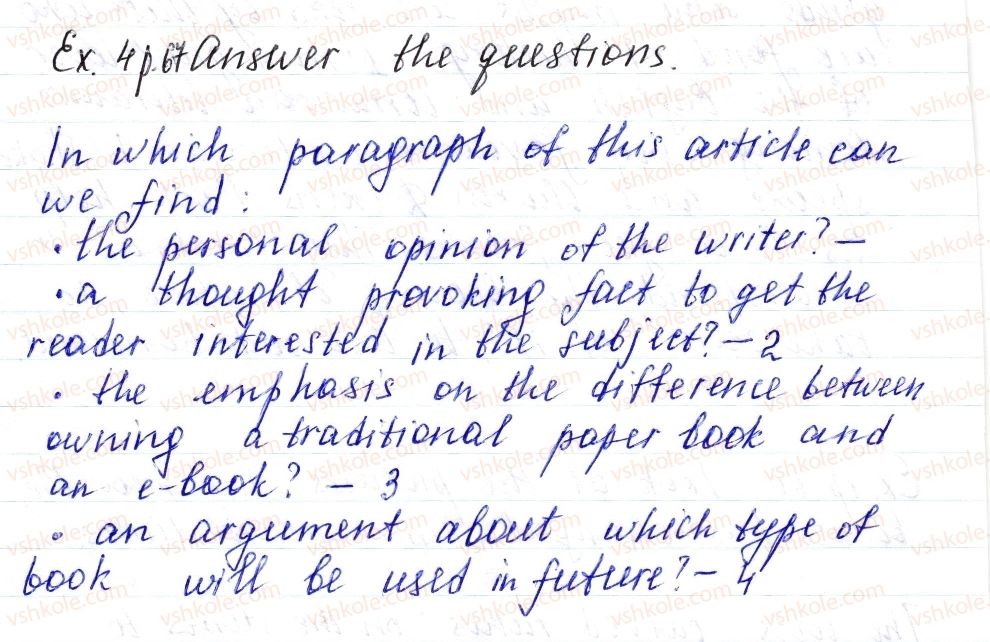 Ex. 4 p.67 Answer the questions.
In which paragraph of this article can
we find:
· the personal opinion of the writer? –
· a thought provoking fact to get the
reader interested in the subject? – 2
· the emphasis on the difference between
owning a traditional paper book and
an e-book? – 3
· an argument about which type of
book will be used in future? – 4